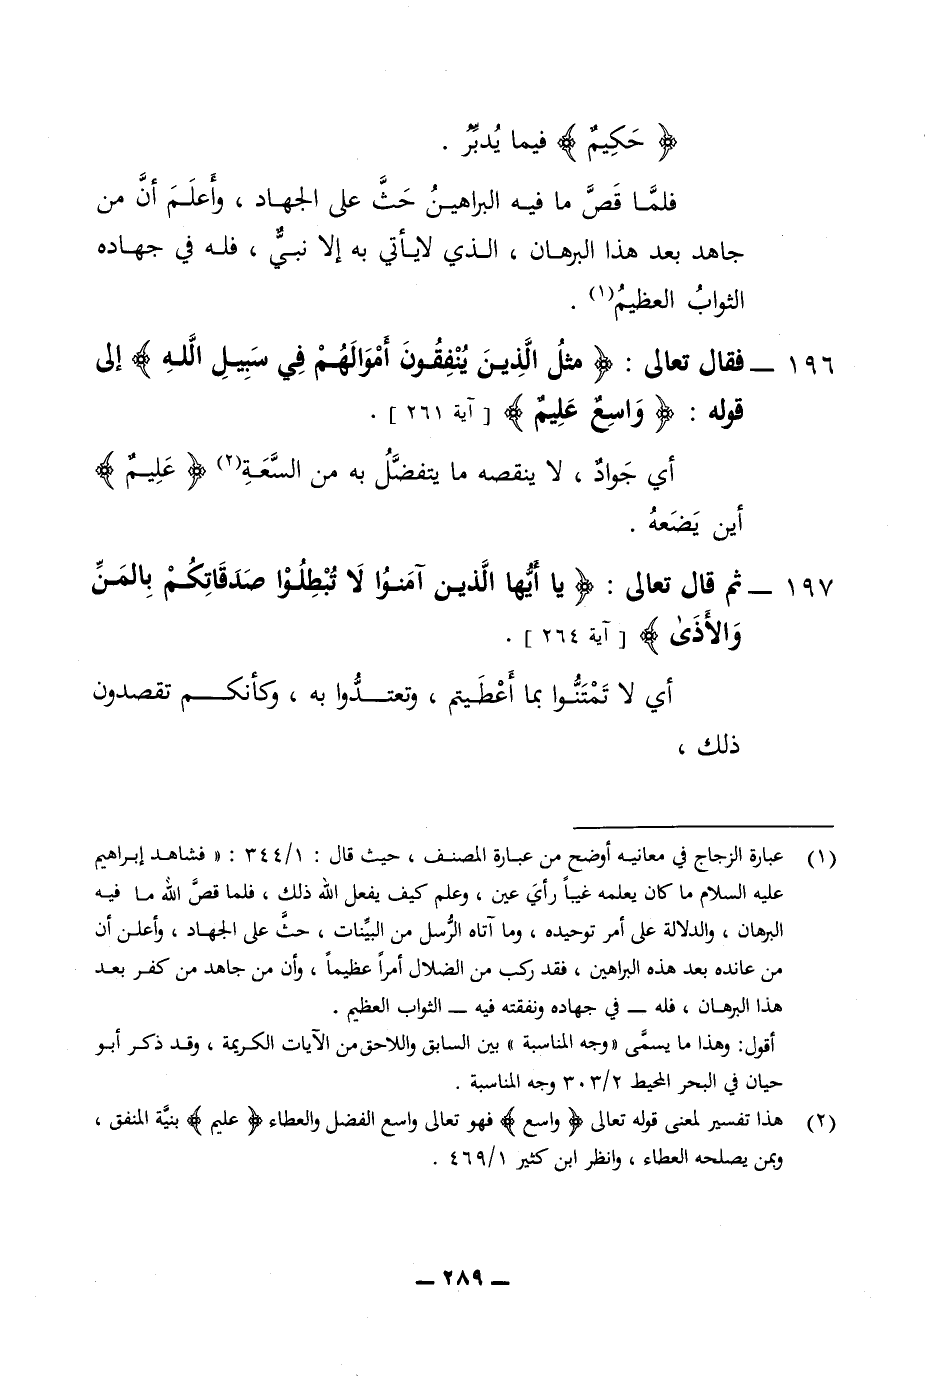 ﴿ حَكِيمٌ ﴾ فيما يُدبِّرُ .
فلمَّا قَصَّ ما فيه البراهينُ حَثَّ على الجهاد ، وأَعلَمَ أنَّ من
جاهد بعد هذا البرهان ، الذي لايأتي به إلا نبيٌّ ، فله في جهاده
الثوابُ العظيمُ(١) .
١٩٦ ـ فقال تعالى : ﴿ مثلُ الَّذِينَ يُنْفِقُونَ أَمْوَالَهُمْ فِي سَبِيلِ اللَّهِ ﴾ إلى
قوله : ﴿ وَاسِعٌ عَلِيمٌ ﴾ [ آية ٢٦١ ] .
أي جَوادٌ ، لا ينقصه ما يتفضَّلُ به من السَّعَةِ(٢) ﴿ عَلِيمٌ ﴾
أين يَضَعهُ .
١٩٧ ـ ثم قال تعالى : ﴿ يا أَيُّها الَّذين آمَنُوا لَا تُبْطِلُوْا صَدَقَاتِكُمْ بِالمَنِّ
وَالأَذَىٰ ﴾ [ آية ٢٦٤ ] .
أي لا تَمْتَنُّوا بما أَعْطَيتم ، وتعتدُّوا به ، وكأنكم تقصدون
ذلك ،
(١) عبارة الزجاج في معانيه أوضح من عبارة المصنف ، حيث قال : ٣٤٤/١ : « فشاهد إبراهيم
عليه السلام ما كان يعلمه غيباً رأيَ عين ، وعلم كيف يفعل الله ذلك ، فلما قصَّ الله ما فيه
البرهان ، والدلالة على أمر توحيده ، وما آتاه الرُّسل من البيِّنات ، حثَّ على الجهاد ، وأعلن أن
من عانده بعد هذه البراهين ، فقد ركب من الضلال أمراً عظيماً ، وأن من جاهد من كفر بعد
هذا البرهان ، فله ـ في جهاده ونفقته فيه ـ الثواب العظيم .
أقول: وهذا ما يسمَّى «وجه المناسبة » بين السابق واللاحق من الآيات الكريمة ، وقد ذكر أبو
حيان في البحر المحيط ٣٠٣/٢ وجه المناسبة .
(٢) هذا تفسير لمعنى قوله تعالى ﴿ واسع ﴾ فهو تعالى واسع الفضل والعطاء ﴿ عليم ﴾ بنيَّة المنفق ،
وبمن يصلحه العطاء ، وانظر ابن كثير ٤٦٩/١ .
ـ ٢٨٩ ـ